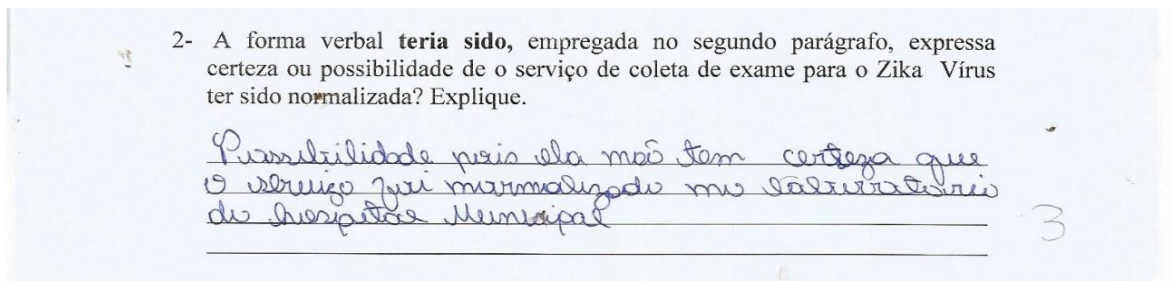 2- A forma verbal teria sido, empregada no segundo parágrafo, expressa
certeza ou possibilidade de o serviço de coleta de exame para o Zika Vírus
ter sido normalizada? Explique.
Possibilidade pois ela não tem certeza que
o serviço foi normalizado no laboratório
do hospital Municipal
3